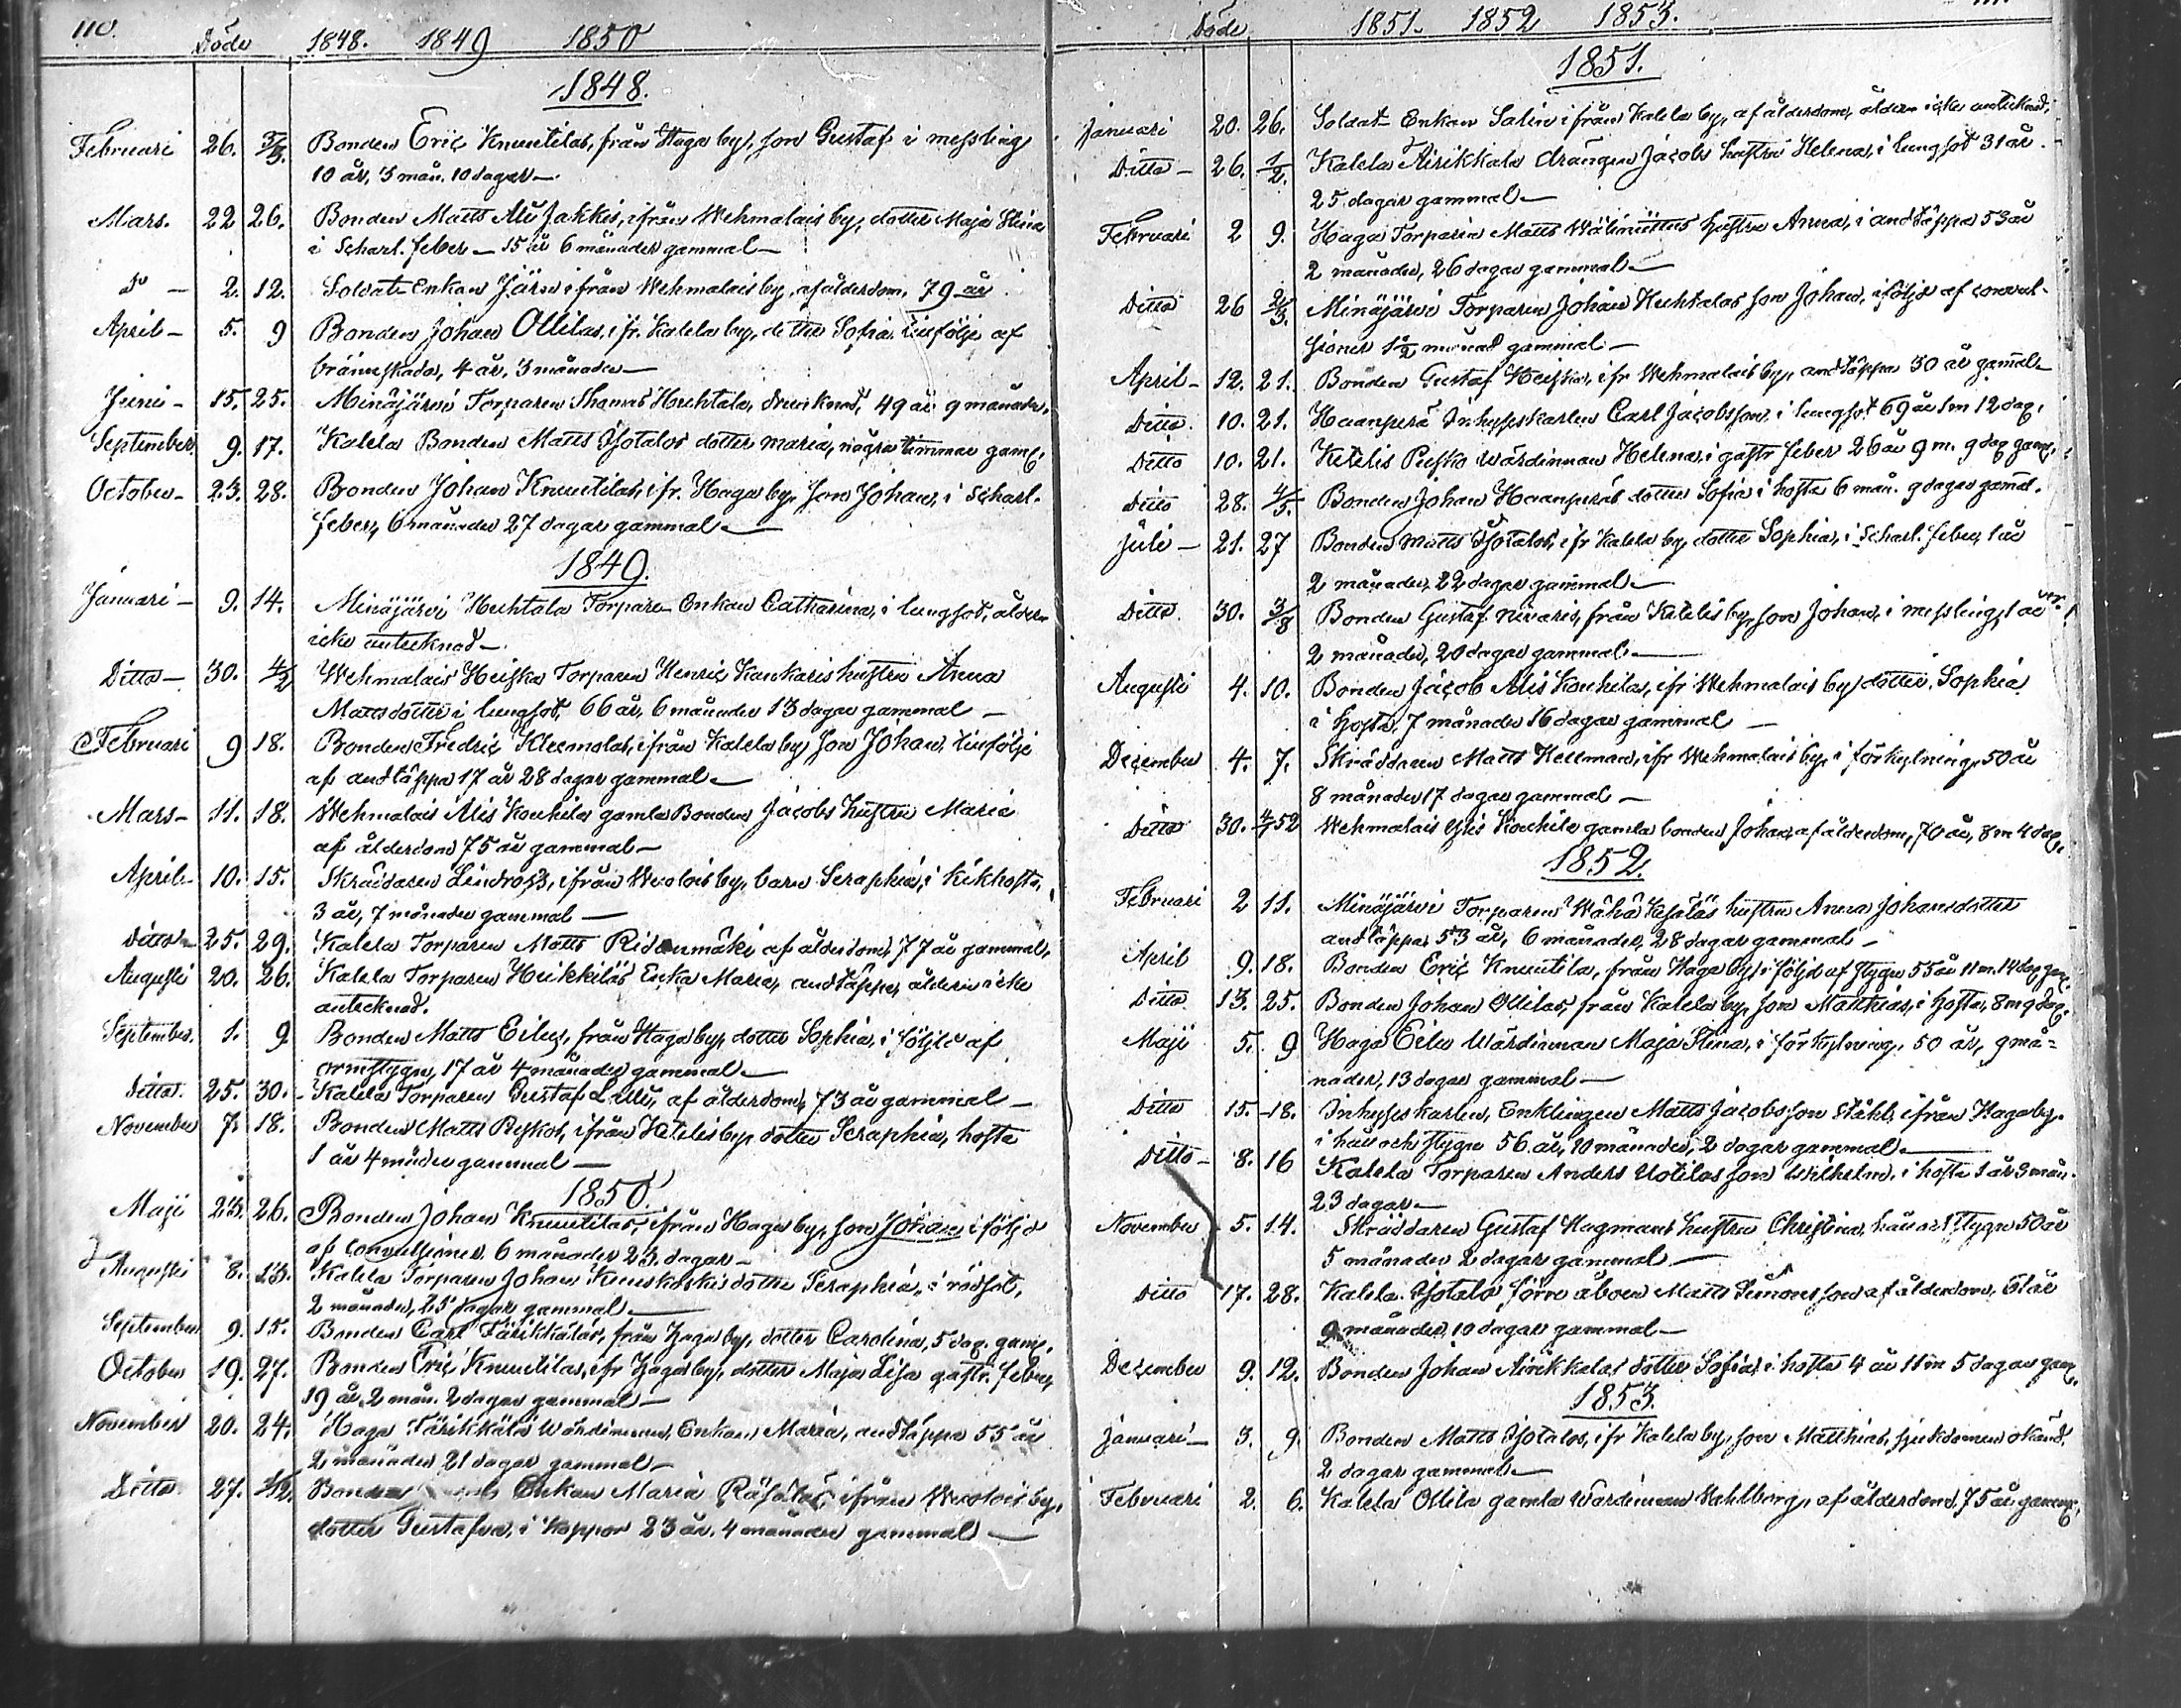 110.
Döde 1848. 1849 1850
1848.
Februari 26. 3/3. Bonden Eric Knuutilas, från Haga by, son Gustaf i messling
10 år, 3 mån. 10 dagar —
Mars. 22 26. Bonden Matts Ali Jakkis, ifrån Wehmalais by, dotter Maja Stina
i Scharl. feber — 15 år 6 månader gammal —
Do — 2. 12. Soldat Enkan Järn ifrån Wehmalais by, af ålderdom, 79 år
April — 5. 9 Bonden Johan Ollilas, ifr. Kalela by, dotter Sofia tillfölje af
brännskada, 4 år, 3 månader —
Junii — 15. 25. Minäjärvi Torparen Thomas Huhtala, drunknad, 49 år 9 månader.
September 9. 17. Kalela Bonden Matts Isotalos dotter Maria, några timmar gaml.
October — 23. 28. Bonden Johan Knuutilas, ifr. Haga by, son Johan, i Scharl.
feber, 6 månader 27 dagar gammal —
1849.
Januari — 9. 14. Minäjärvi Huhtala Torpare Enkan Catharina, i lungsot, ålder
icke antecknad —
Ditto — 30. 4/2 Wehmalais Heiska Torparen Henric Kankaris hustru Anna
Mattsdotter i lungsot, 66 år, 6 månader 13 dagar gammal —
Februari 9 18. Bonden Fredric Kleemolas, ifrån Kalela by son Johan, tillfölje
af andtäppa 17 år 28 dagar gammal —
Mars — 11. 18. Wehmalais Alis Kouhila gamla Bonden Jacobs hustru Maria
af ålderdom 75 år gammal —
April — 10. 15. Skräddaren Lindross, ifrån Wuolois by, barn Seraphia, i kikhosta,
3 år, 7 månader gammal —
Ditto — 25. 29. Kalela Torparen Matts Ridanmäki af ålderdom, 77 år gammal,
Augusti 20. 26. Kalela Torparen Heikkiläs Enka Maria, andtäppa, åldern icke
antecknad.
September. 1. 9 Bonden Matts Eilus, från Haga by, dotter Sophia, i följd af
ormstygn, 17 år 4 månader gammal —
Ditto. 25. 30. Kalela Torparen Gustaf Lalli, af ålderdom, 73 år gammal —
November 7. 18. Bonden Matts Ryskos, ifrån Ketelis by dotter Seraphia, hosta
1 år 4 månder gammal —
1850.
Maji 23. 26. Bonden Johan Knuutilas, ifrån Haga by, son Johan i följd
af convulsioner. 6 månader 23. dagar —
Augusti 8. 13. Kalela Torparen Johan Kuuskoskis dotter Seraphia, i rödsot,
2 månader, 25 dagar gammal —
September 9. 15. Bonden Carl Färikkälas, från Haga by, dotter Carolina, 5 dag. gaml.
October 19. 27. Bonden Eric Knuutilas, ifr Haga by, dotter Maja Lisa gastr. feber,
19 år, 2 mån. 2 dagar gammal —
November 20. 24. Haga Färikkälä Wärdinnan, Enkan Maria, andtäppa 55 år
2 månader 21 dagar gammal —
Ditto 27. 1/12. Bonde Enkan Maria Räsäläs ifrån Wuolois by,
dotter Gustafva, i koppor 23 år, 4 månader gammal —
Döde 1851. 1852 1853.
1851.
Januari 20. 26. Soldat Enkan Salin ifrån Kalela by, af ålderdom, åldern icke antecknad,
Ditto — 26. 1/2. Kalela Airikkala drängen Jacobs hustru Helena, i lungsot 31 år.
25 dagar gammal —
Februari 2 9. Haga Torparen Matts Wälimättäs hustru Anna, i andtäppa 53 år
2 månader, 26 dagar gammal —
Ditto 26 2/3. Minäjärvi Torparen Johan Huhtalas son Johan, i följd af convul-
sioner 1 1/2 månad gammal —
April — 12. 21. Bonden Gustaf Heiska, ifr Wehmalais by, andtäppa 30 år gammal
Ditto. 10. 21. Haanperä Inhyseskarlen Carl Jacobsson, i lungsot 69 år 1 m 12 dag.
Ditto 10. 21. Ketelis Pusko Wärdinnan Helena, i gastr feber 26 år 9 m. 9 dag gaml.
Ditto 28. 4/5. Bonden Johan Haanperäs dotter Sofia i hosta 6 mån. 9 dagar gamal.
Juli — 21. 27 Bonden Matts Isotalos, ifr Kalela by, dotter Sophia, i Scharl. feber, 1 år
2 månader, 22 dagar gammal —
Ditto. 30. 3/8 Bonden Gustaf Nivaris, från Ketelis by, son Johan, i messling, 1 år
2 månader, 20 dagar gammal —
Augusti 4. 10. Bonden Jacob Alis Kouhilas, ifr Wehmalais by dotter Sophia
i hosta, 7 månader 16 dagar gammal —
December 4. 7. Skräddaren Matts Hellman, ifr Wehmalais by, i förkylning, 50 år
8 månader 17 dagar gammal —
Ditto 30. 4/1 52 Wehmalais Ylis Kouhila gamla bonden Johan, af ålderdom, 70 år, 8 m 4 dag.
1852.
Februari 2 11. Minäjärvi Torparen Wähä Kesäläs hustru Anna Johansdotter
andtäppa 53 år, 6 månader, 28 dagar gammal —
April 9. 18. Bonden Eric Knuutila, från Haga by, i följd af stygn 55 år 11 m. 14 dag. gam.
Ditto 13. 25. Bonden Johan Ollilas, från Kalela by, son Matthias, i hosta, 8 m 9 dag.
Maji 5. 9 Haga Eilu Wärdinnan Maja Stina, i förkylning, 50 år, 9 må=
nader, 13 dagar gammal —
Ditto 15. 18. Inhyseskarlen, Enklingen Matts Jacobsson Ståhl, ifrån Haga by.
i håll och stygn 56 år, 10 månader, 2 dagar gammal —
Ditto — 8. 16 Kalela Torparen Anders Uotilas son Wilhelm, i hosta 1 år 3 mån.
23 dagar —
November 5. 14. Skräddaren Gustaf Hagmans hustru Christina, håll och stygn 50 år
5 månader 2 dagar gammal —
Ditto 17. 28. Kalela Isotalo, förre åboen Matts Simonsson af ålderdom, 61 år
9 månader, 10 dagar gammal —
December 9. 12. Bonden Johan Airikkalas dotter Sofia, i hosta 4 år 11 m 5 dagar gam.
1853.
Januari — 3. 9. Bonden Matts Isotalos, ifr Kalela by, son Matthias, sjukdomen okänd.
2 dagar gammal —
Februari 2. 6. Kalela Ollila gamla Wärdinnan Wahlberg, af ålderdom, 75 år gamml.